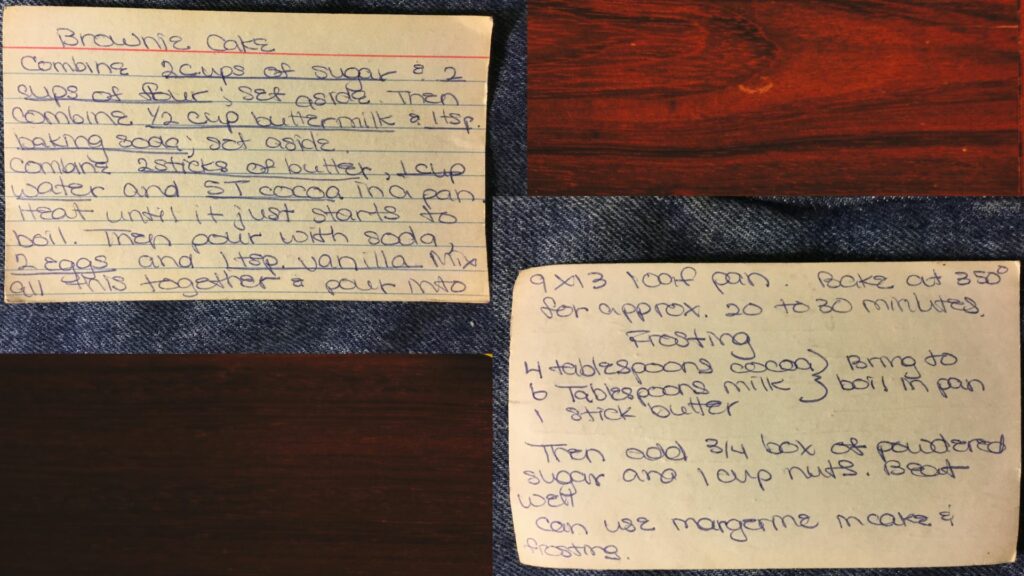 Brownie Cake
Combine 2 cups of sugar & 2
cups of flour; set aside. Then
combine 1/2 cup buttermilk & 1 tsp.
baking soda; set aside.
Combine 2 sticks of butter, 1 cup
water and 5T cocoa in a pan.
Heat until it just starts to
boil. Then pour with soda,
2 eggs and 1 tsp. vanilla Mix
all this together & pour into
9x13 loaf pan. Bake at 350°
for approx. 20 to 30 minutes.
Frosting
4 tablespoons cocoa } Bring to
6 Tablespoons milk } boil in pan
1 stick butter
Then add 3/4 box of powdered
sugar and 1 cup nuts. Beat
well
Can use margerine in cake &
frosting.